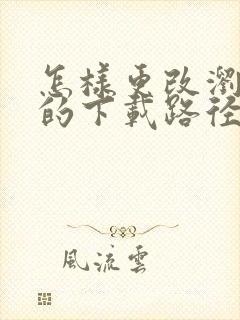 怎樣更改瀏
的下載路徑
風流雲